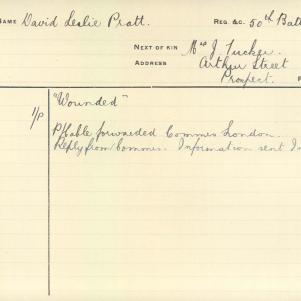 NAME David Leslie Pratt. REG. &C. 50th Batt
NEXT OF KIN Mrs J. Tucker.
ADDRESS Arthur Street
Prospect.
1/P "Wounded"
P/Cable forwarded Commrs London.
Reply from Commrs. Information sent